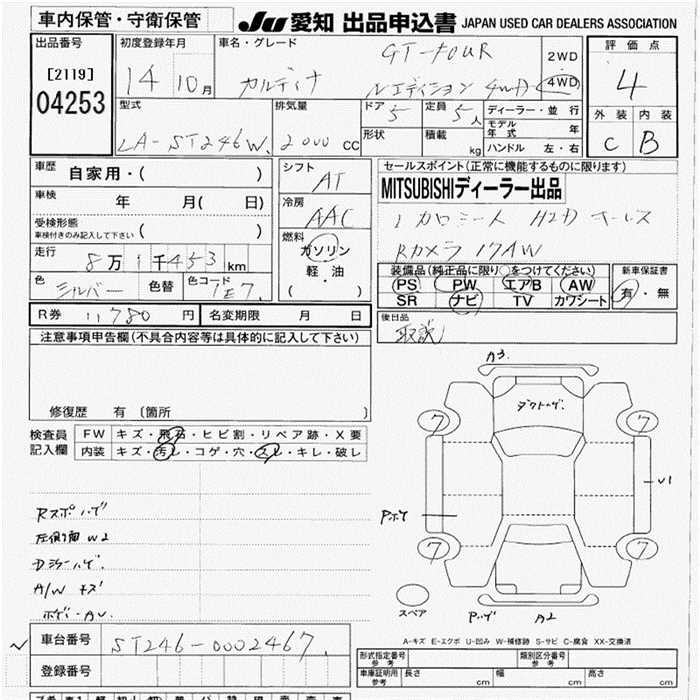 車内保管・守衛保管
JU 愛知 出品申込書 JAPAN USED CAR DEALERS ASSOCIATION
出品番号
[2119]
04253
初度登録年月
14 10月
車名・グレード
GT-FOUR
カルディナ Nエディション 4WD
2WD
4WD
評価点
4
外装 内装
C B
型式
LA-ST246W
排気量
2000 cc
ドア 5
定員 5人
形状
積載 kg
ディーラー・並行
モデル年式 年
ハンドル 左・右
車歴 自家用・( )
車検 年 月( 日)
受検形態
車検付きのみ記入して下さい ( )
走行 8万1千453km
色 シルバー 色替 色コード 1E7
シフト AT
冷房 AAC
燃料
ガソリン
軽・油
( )
セールスポイント(正常に機能するものに限ります)
MITSUBISHIディーラー出品
Rカメラ 17AW
装備品(純正品に限り○をつけてください)
PS PW エアB AW
SR ナビ TV カワシート
新車保証書
有・無
後日品
取説
R券 11780円 名変期限 月 日
注意事項申告欄(不具合内容等は具体的に記入して下さい)
修復歴 有 〔箇所 〕
検査員記入欄
FW キズ・飛石・ヒビ割・リペア跡・X要
内装 キズ・汚レ・コゲ・穴・スレ・キレ・破レ
A3
7
7
7
7
U1
A2
スペア
A-キズ E-エクボ U-凹み W-補修跡 S-サビ C-腐食 XX-交換済
A/W キズ
車台番号 ST246-0002467
登録番号
形式指定番号 参考
類別区分番号 参考
車庫証明用 参考 長さ cm 幅 cm 高さ cm